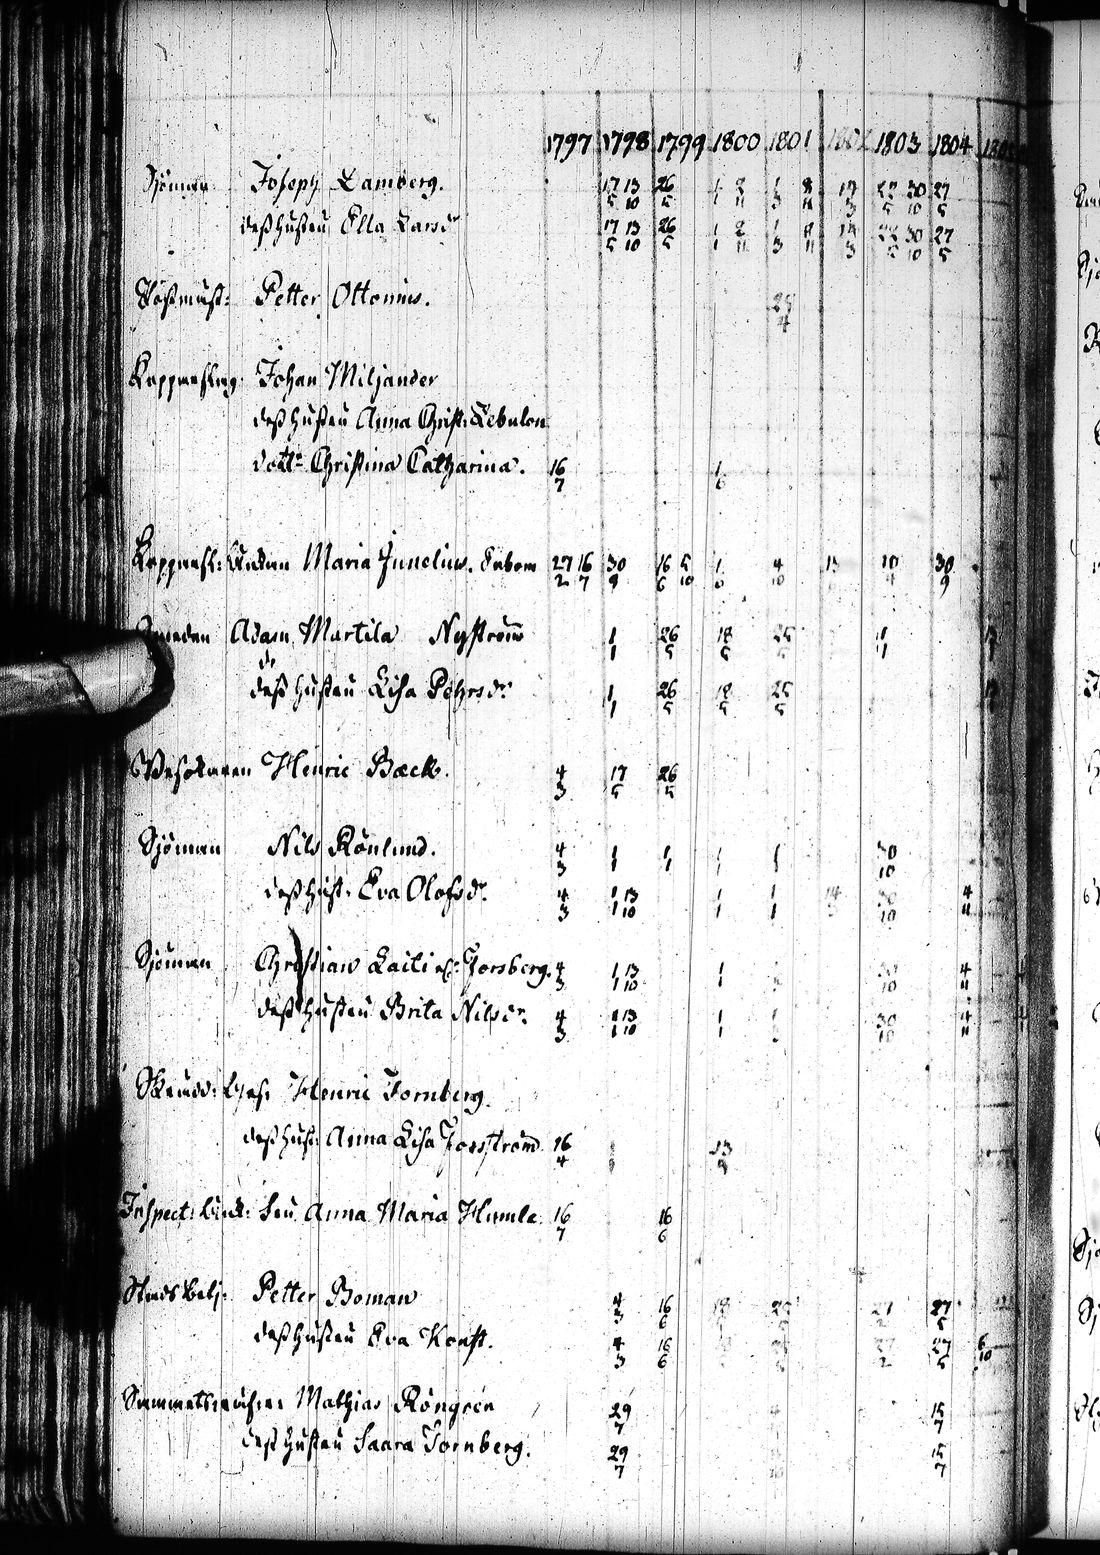 1797 1798 1799 1800 1801 1802 1803 1804
Sjöman Joseph Lamberg. 17/5 13/10 26/5 1/1 2/11 1/3 8/11 14/3 22/5 30/10 27/5
deß hustru Ella Larsdr 17/5 13/10 26/5 1/1 2/11 1/3 8/11 14/3 22/5 30/10 27/5
Petter Ottonius. 25/4
Johan Miljander
deß hustru Anna Christ: Zebulon
dottr Christina Catharina. 16/7 1/6
Enkan Maria Junelius. Enbom 27/2 16/7 30/9 16/6 5/10 1/6 4/10 10/4 30/9
Smeden Adam Martila Nyström 1/1 26/5 18/5 25/5 1/1
deß hustru Lisa Pehrsdr 1/1 26/5 18/5 25/5
Henric Bæck. 4/3 17/5 26/5
Sjöman Nils Rönlund. 4/3 1/1 1/1 1/1 1/1 30/10
deß hust: Eva Olofsdr. 4/3 1/1 13/10 1/1 1/1 14/3 30/10 4/11
Sjöman Christian Laiti Forsberg. 4/3 1/1 13/10 1/1 30/10 4/11
deß hustru Brita Nilsdr. 4/3 1/1 13/10 1/1 1/3 30/10 4/11
Henric Tornberg.
deß hust: Anna Lisa Forsström 16/4 13/9
Inspect: Enk: Fru Anna Maria Humle 16/7 16/6
Petter Boman 4/3 16/6 18 27 27/5
deß hustru Eva Konst. 4/3 16/6 27/2 27/5 6/10
Mathias Röngrén 29/7 15/7
deß hustru Saara Tornberg. 29/7 15/7